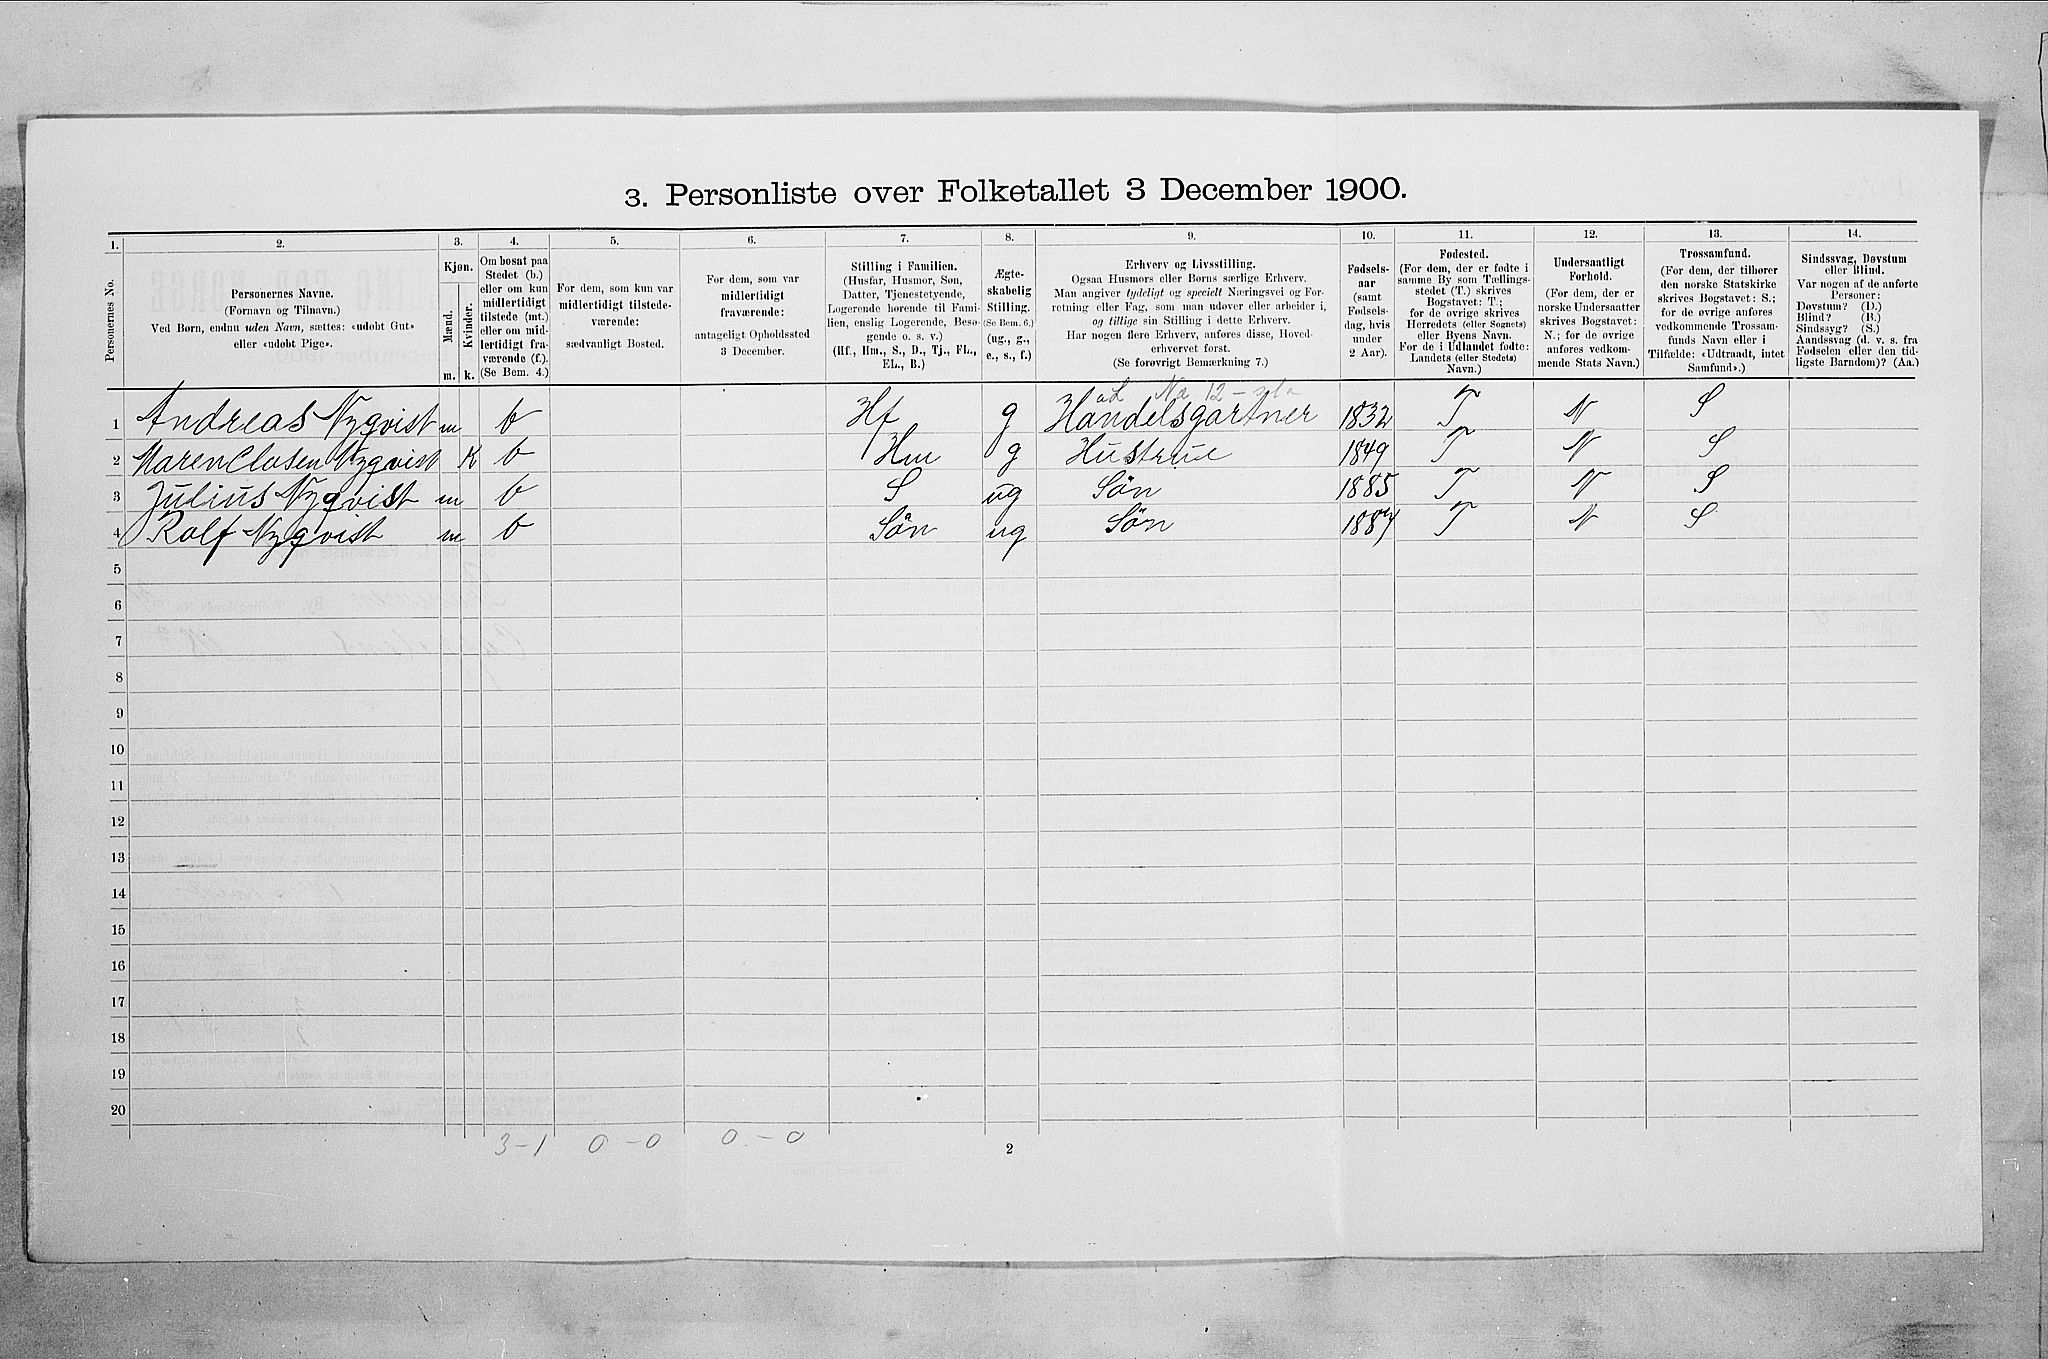 3. Personliste over Folketallet 3 December 1900.
1. 2. 3. 4. 5. 6. 7. 8. 9. 10. 11. 12. 13. 14.
Personernes No.
Personernes Navne.
(Fornavn og Tilnavn.)
Ved Børn, endnu uden Navn, sættes: «udøbt Gut»
eller «udøbt Pige».
Kjøn.
Mænd.
Kvinder.
m. k.
Om bosat paa
Stedet (b.)
eller om kun
midlertidigt
tilstede (mt.)
eller om mid-
lertidigt fra-
værende (f.).
(Se Bem. 4.)
For dem, som kun var
midlertidigt tilstede-
værende:
sædvanligt Bosted.
For dem, som var
midlertidigt
fraværende:
antageligt Opholdssted
3 December.
Stilling i Familien.
(Husfar, Husmor, Søn,
Datter, Tjenestetyende,
Logerende hørende til Fami-
lien, enslig Logerende, Besø-
gende o. s. v.)
(Hf., Hm., S., D., Tj., FL.,
EL., B.)
Ægte-
skabelig
Stilling.
(Se Bem. 6.)
(ug., g.,
e., s., f.)
Erhverv og Livsstilling.
Ogsaa Husmors eller Børns særlige Erhverv.
Man angiver tydeligt og specielt Næringsvei og For-
retning eller Fag, som man udøver eller arbeider i,
og tillige sin Stilling i dette Erhverv.
Har nogen flere Erhverv, anføres disse, Hoved-
erhvervet først.
(Se forøvrigt Bemærkning 7.)
Fødsels-
aar
(samt
Fødsels-
dag, hvis
under
2 Aar).
Fødested.
(For dem, der er fødte i
samme By som Tællings-
stedet (T.) skrives
Bogstavet: T.;
for de øvrige skrives
Herredets (eller Sognets)
eller Byens Navn.
For de i Udlandet fødte:
Landets (eller Stedets)
Navn.)
Undersaatligt
Forhold.
(For dem, der er
norske Undersaatter
skrives Bogstavet:
N.; for de øvrige
anføres vedkom-
mende Stats Navn.)
Trossamfund.
(For dem, der tilhører
den norske Statskirke
skrives Bogstavet: S.;
for de øvrige anføres
vedkommende Trossam-
funds Navn eller i
Tilfælde: «Udtraadt, intet
Samfund».)
Sindssvag, Døvstum
eller Blind.
Var nogen af de anførte
Personer:
Døvstum? (D.)
Blind? (B.)
Sindssyg? (S.)
Aandssvag (d. v. s. fra
Fødselen eller den tid-
ligste Barndom)? (Aa.)
1 Andreas Nyqvist m b Hf g Handelsgartner 1832 T N S
2 Maren Closen Nyqvist K b Hm g Hustrue 1849 T N S
3 Julius Nyqvist m b S ug Sön 1885 T N S
4 Rolf Nyqvist m b Sön ug Sön 1887 T N S
5
6
7
8
9
10
11
12
13
14
15
16
17
18
19
20
3-1 0-0 0-0
2